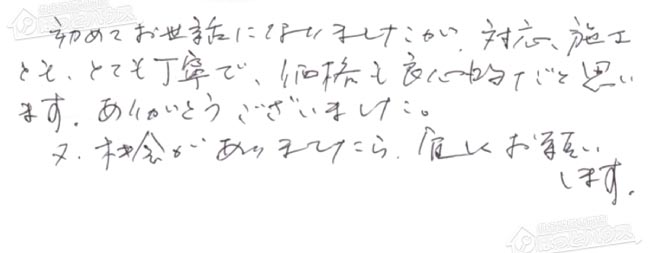 初めてお世話になりましたが、対応、施工
とも、とても丁寧で、価格も良心的だと思い
ます。ありがとうございました。
又、機会がありましたら、宜しくお願い
します。